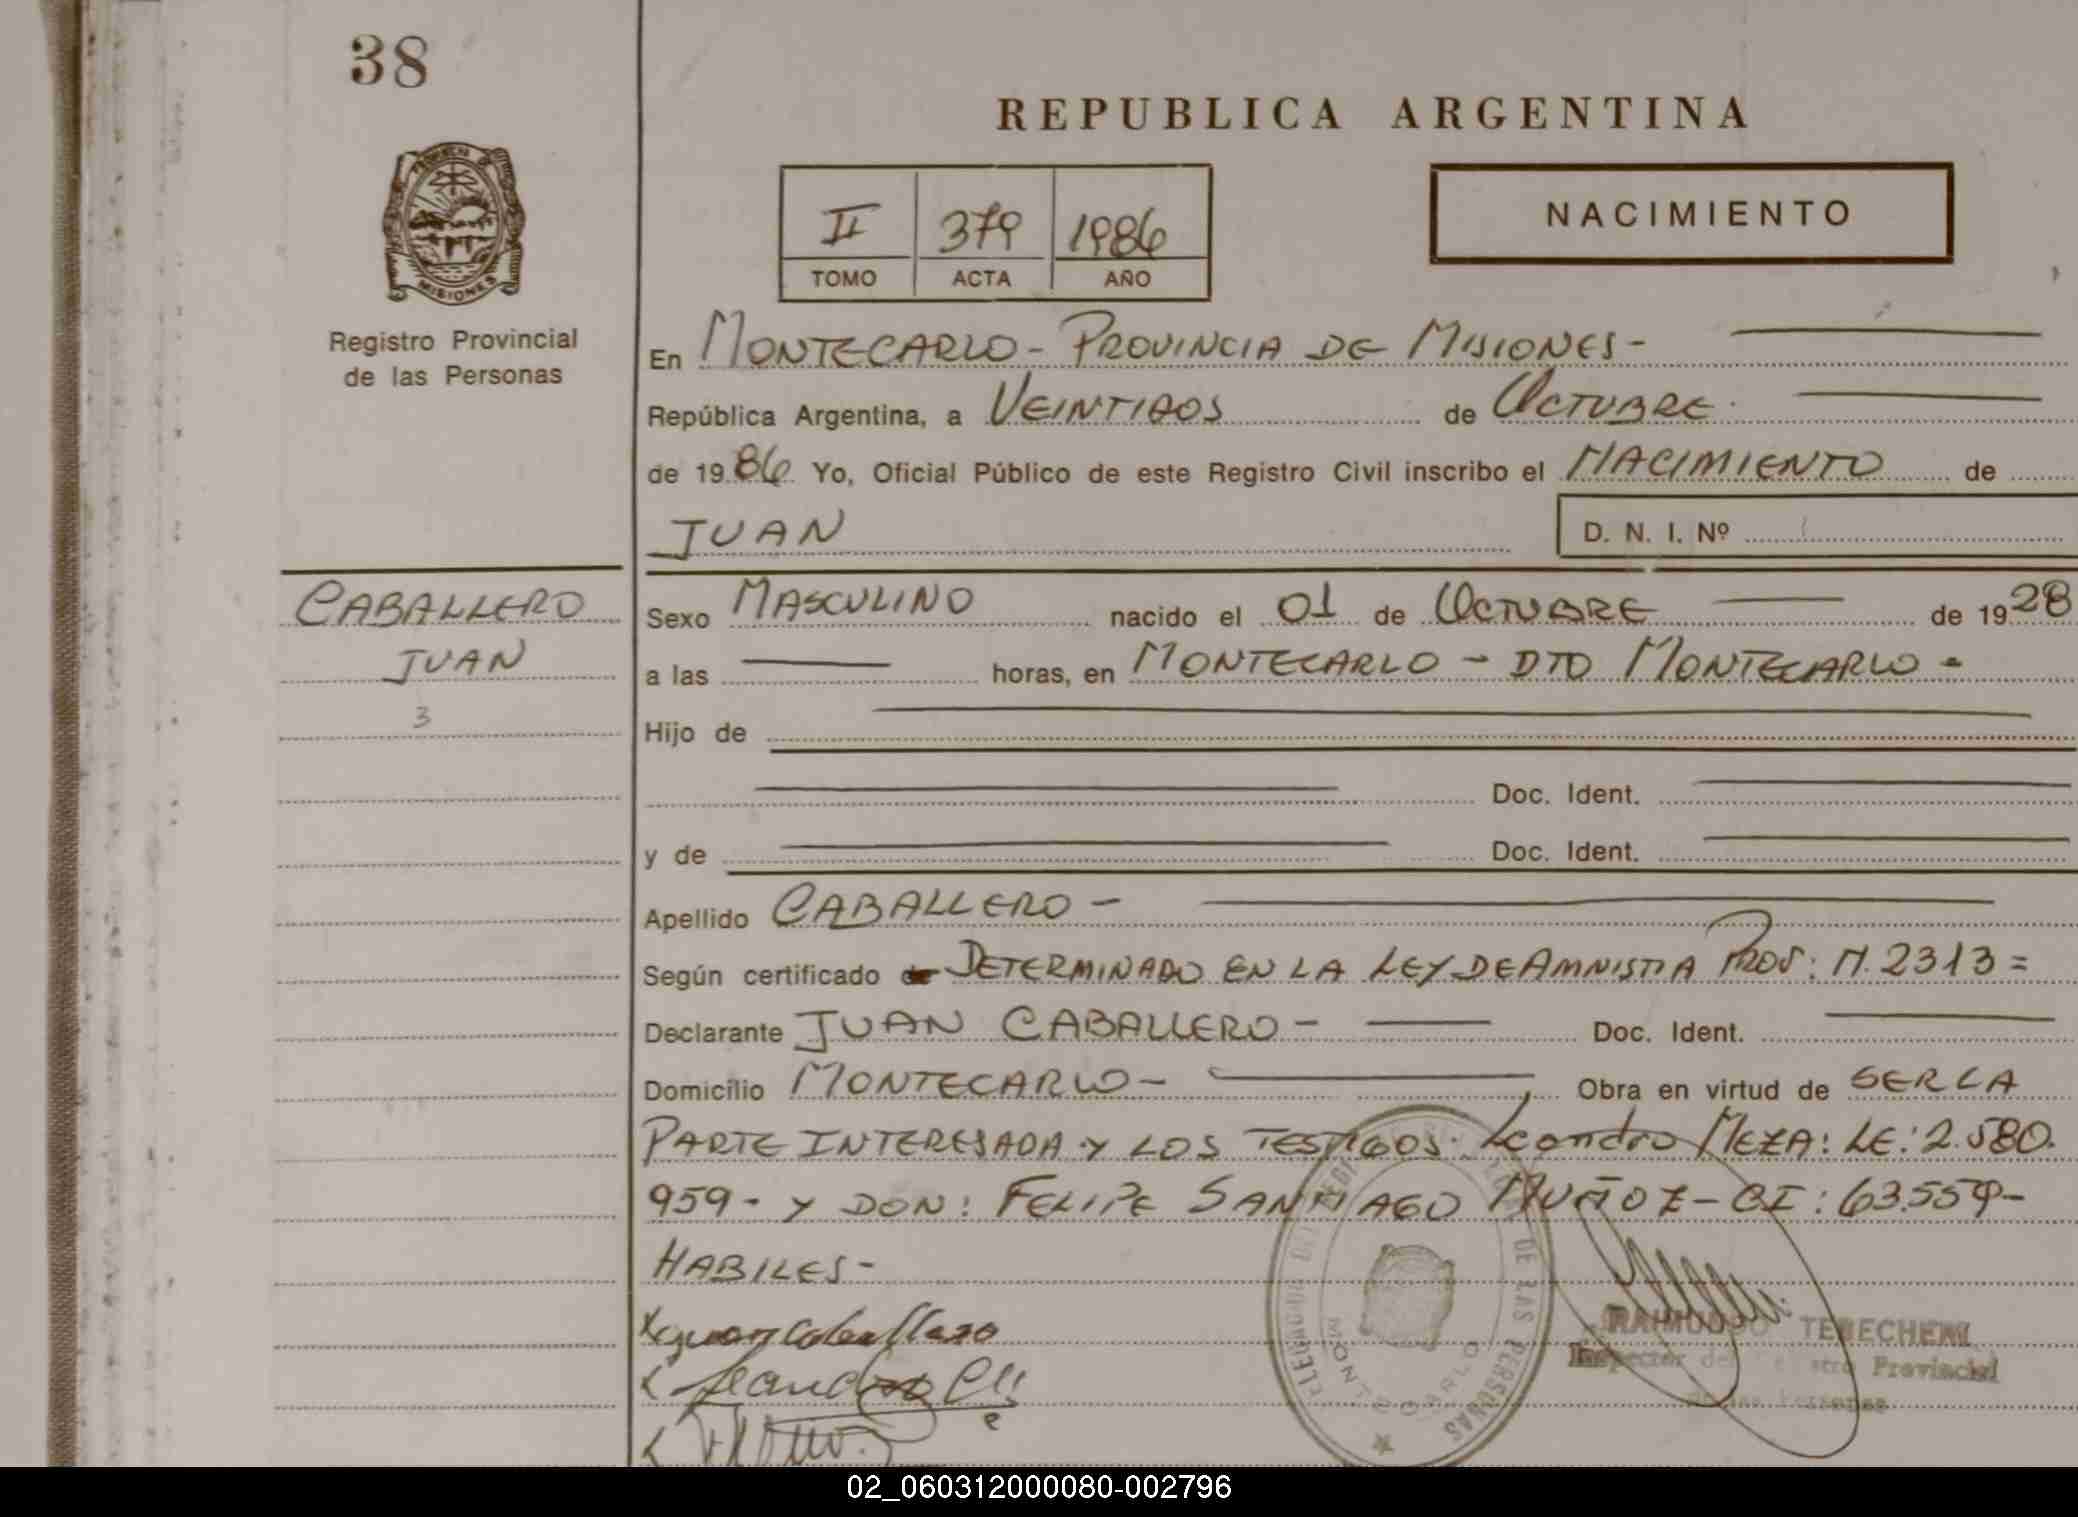 38
REPUBLICA ARGENTINA
PROVINCIA DE
MISIONES
Registro Provincial
de las Personas
II 379 1986
TOMO ACTA AÑO
NACIMIENTO
En MONTECARLO - PROVINCIA DE MISIONES -
República Argentina, a VEINTIDOS de OCTUBRE.
de 1986 Yo, Oficial Público de este Registro Civil inscribo el NACIMIENTO de
JUAN D. N. I. Nº
CABALLERO
JUAN
3
Sexo MASCULINO nacido el 01 de OCTUBRE de 1928
a las horas, en MONTECARLO - DTO MONTECARLO -
Hijo de
Doc. Ident.
y de Doc. Ident.
Apellido CABALLERO -
Según certificado de DETERMINADO EN LA LEY DE AMNISTIA PROV: N. 2313 =
Declarante JUAN CABALLERO - Doc. Ident.
Domicilio MONTECARLO - Obra en virtud de SER LA
PARTE INTERESADA Y LOS TESTIGOS: Leandro MEZA: LE: 2.580.
959 - Y DON: FELIPE SANTIAGO MUÑOZ - CI: 63.559 -
HABILES -
x Juan Caballero
x Leandro
x
DE LAS PERSONAS
MONTE CARLO
RAIMUNDO TERECHEN
Inspector del Registro Provincial
de las Personas
02_060312000080-002796